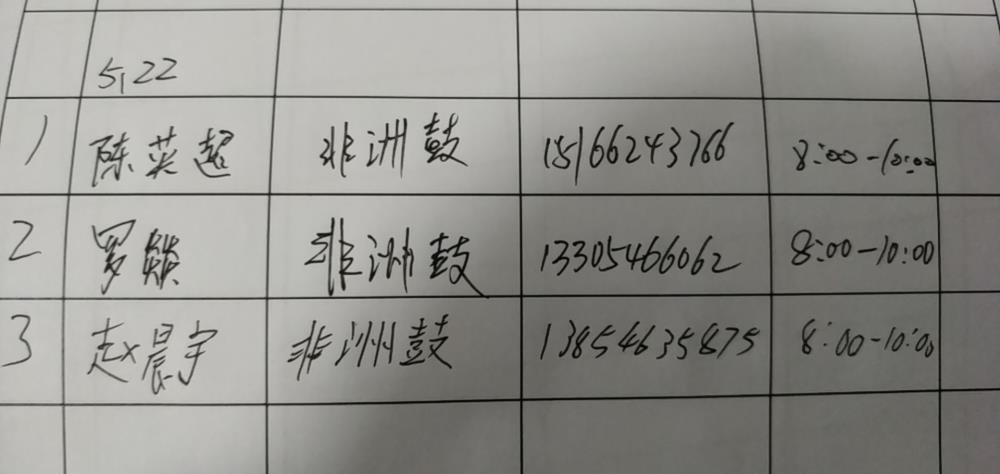 5,22
1 陈英超 非洲鼓 15166243766 8:00-10:00
2 罗燚 非洲鼓 13305466062 8:00-10:00
3 赵晨宇 非洲鼓 13854635875 8:00-10:00